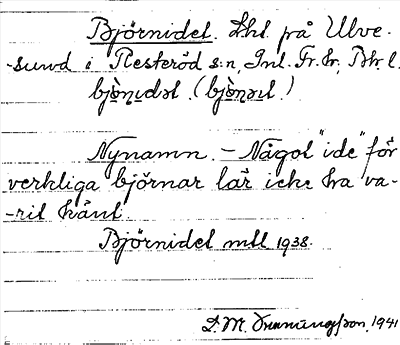 Björnidet. Lht. på Ulve-
-sund i Resteröd s:n, Inl. Fr. hr, Bhl.
bjönidət. (bjönət.)
Nynamn. - Något "ide" för
verkliga björnar lär icke ha va-
-rit känt.
Björnidet mtl 1938.
D. M. 1941